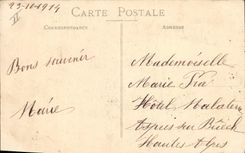 23-10-1914
II
CARTE POSTALE
CORRESPONDANCE
ADRESSE
Bons souvenir
Marie
Mademoiselle
Marie Pia
Hôtel
Aspres sur Büech
Hautes Alpes